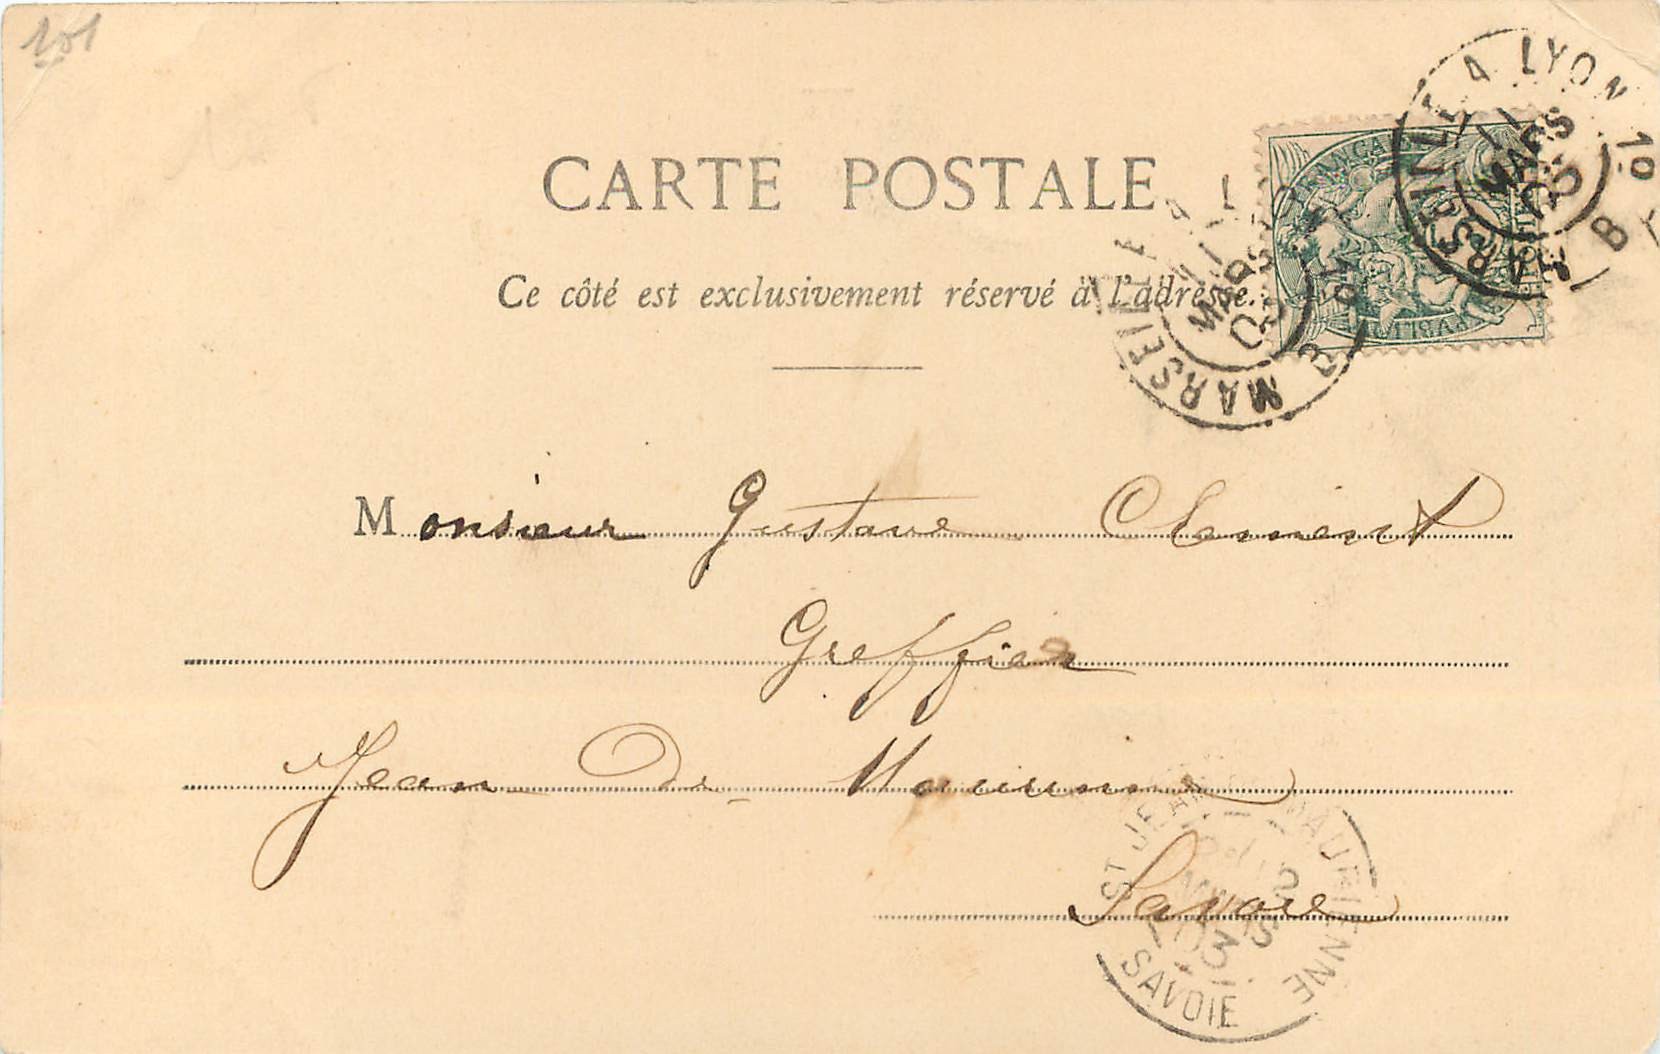 101
CARTE POSTALE
Ce côté est exclusivement réservé à l'adresse.
MARSEILLE A LYON 1º B
MARS
03
MARSEILLE A
MARS
03
B
Monsieur Gustave Clement
Greffier
Jean de Maurienne
Savoie
ST JEAN MAURIENNE
MARS
03
SAVOIE